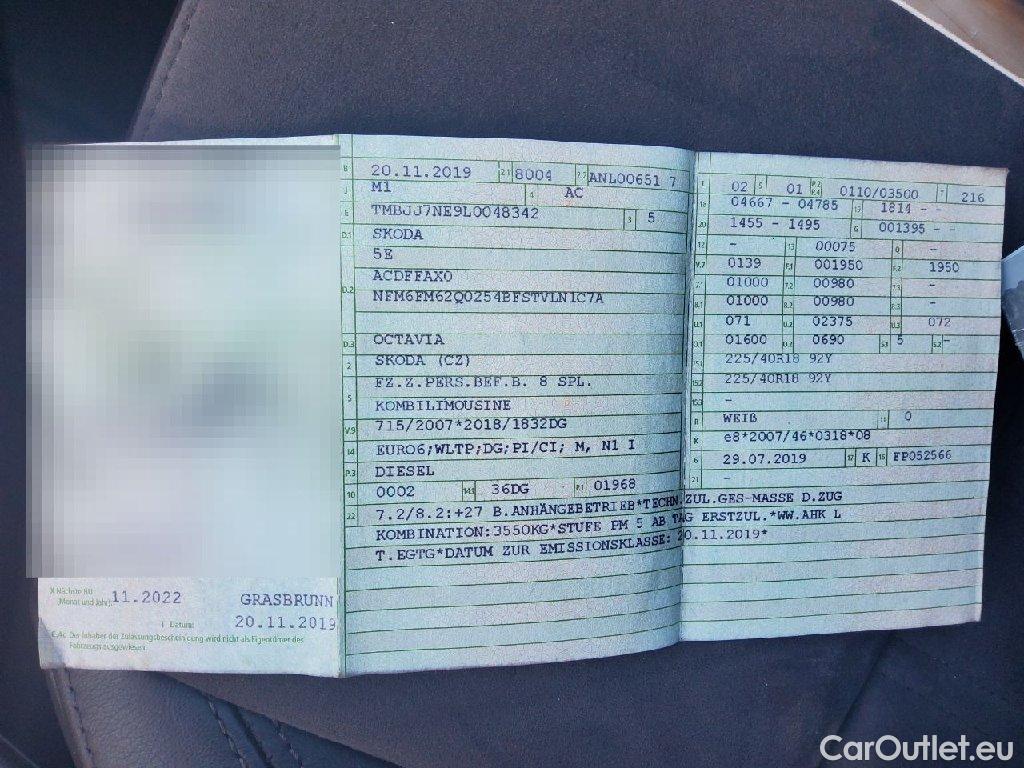 B 20.11.2019 2.1 8004 2.2 ANL00651 7
J M1 4 AC
E TMBJJ7NE9L0048342 3 5
D.1 SKODA
5E
D.2 ACDFFAX0
NFM6FM62Q0254BFSTVLN1C7A
D.3 OCTAVIA
2 SKODA (CZ)
5 FZ.Z.PERS.BEF.B. 8 SPL.
KOMBILIMOUSINE
V.9 715/2007*2018/1832DG
14 EURO6;WLTP;DG;PI/CI; M, N1 I
P.3 DIESEL
10 0002 14.1 36DG P.1 01968
22 7.2/8.2:+27 B.ANHÄNGEBETRIEB*TECHN.ZUL.GES-MASSE D.ZUG
KOMBINATION:3550KG*STUFE PM 5 AB TAG ERSTZUL.*WW.AHK L
T.EGTG*DATUM ZUR EMISSIONSKLASSE: 20.11.2019*
L 02 9 01 P.2 P.4 0110/03500 T 216
18 04667 - 04785 19 1814 - -
20 1455 - 1495 G 001395 - -
12 - 13 00075 Q -
V.7 0139 F.1 001950 F.2 1950
7.1 01000 7.2 00980 7.3 -
8.1 01000 8.2 00980 8.3 -
U.1 071 U.2 02375 U.3 072
O.1 01600 O.2 0690 S.1 5 S.2 -
15.1 225/40R18 92Y
15.2 225/40R18 92Y
15.3 -
R WEIß 11 0
K e8*2007/46*0318*08
6 29.07.2019 17 K 16 FP052566
21 -
X Nächste HU
(Monat und Jahr): 11.2022 GRASBRUNN
I Datum: 20.11.2019
C.4c Der Inhaber der Zulassungsbescheinigung wird nicht als Eigentümer des
Fahrzeugs ausgewiesen.
CarOutlet.eu